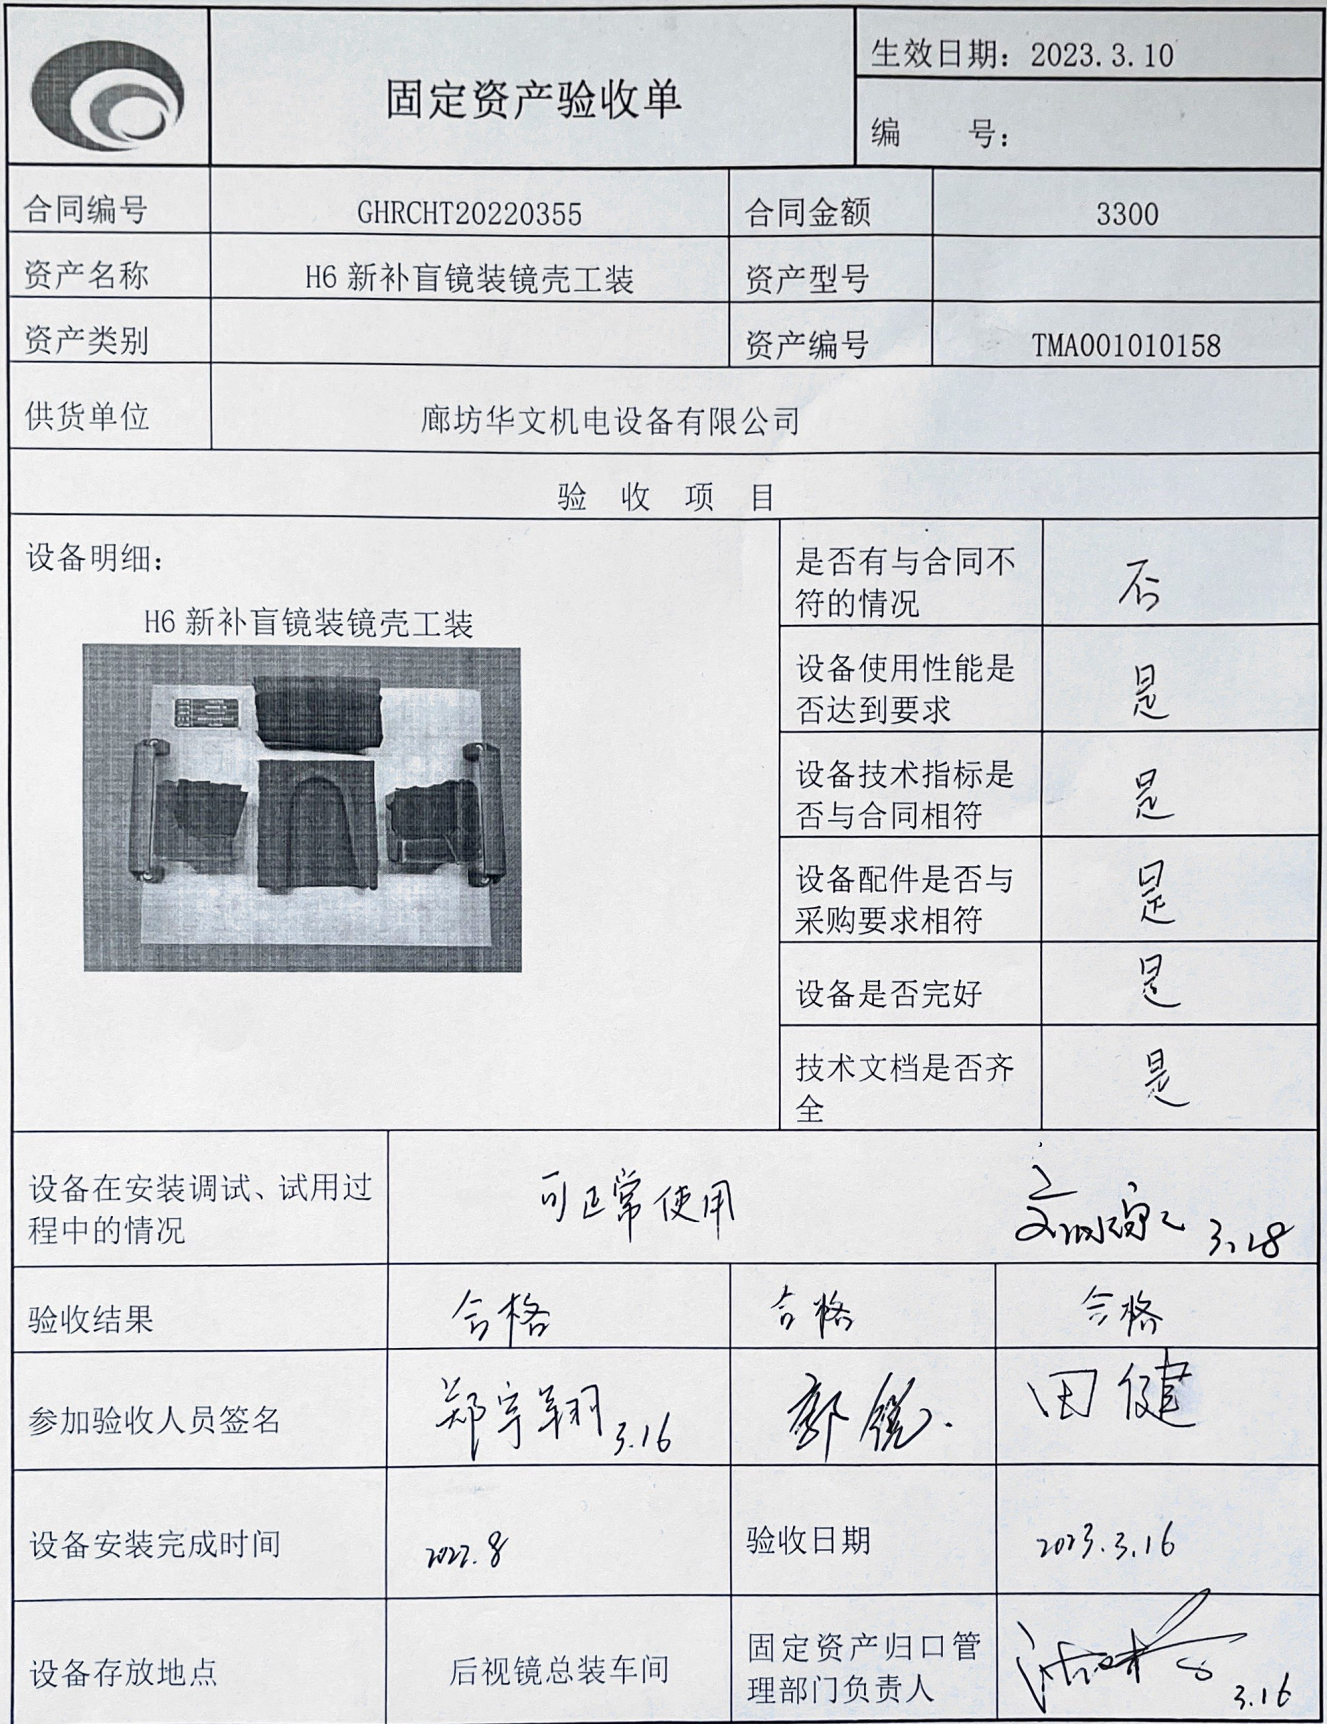 固定资产验收单
生效日期：2023.3.10
编 号：
合同编号 GHRCHT20220355 合同金额 3300
资产名称 H6 新补盲镜装镜壳工装 资产型号
资产类别 资产编号 TMA001010158
供货单位 廊坊华文机电设备有限公司
验 收 项 目
设备明细：
H6 新补盲镜装镜壳工装
是否有与合同不
符的情况
否
设备使用性能是
否达到要求
是
设备技术指标是
否与合同相符
是
设备配件是否与
采购要求相符
是
设备是否完好
是
技术文档是否齐
全
是
设备在安装调试、试用过
程中的情况
可正常使用
3.18
验收结果 合格 合格 合格
参加验收人员签名 郑宇翔 3.16 郭锐 田健
设备安装完成时间 2022.8 验收日期 2023.3.16
设备存放地点 后视镜总装车间
固定资产归口管
理部门负责人
3.16